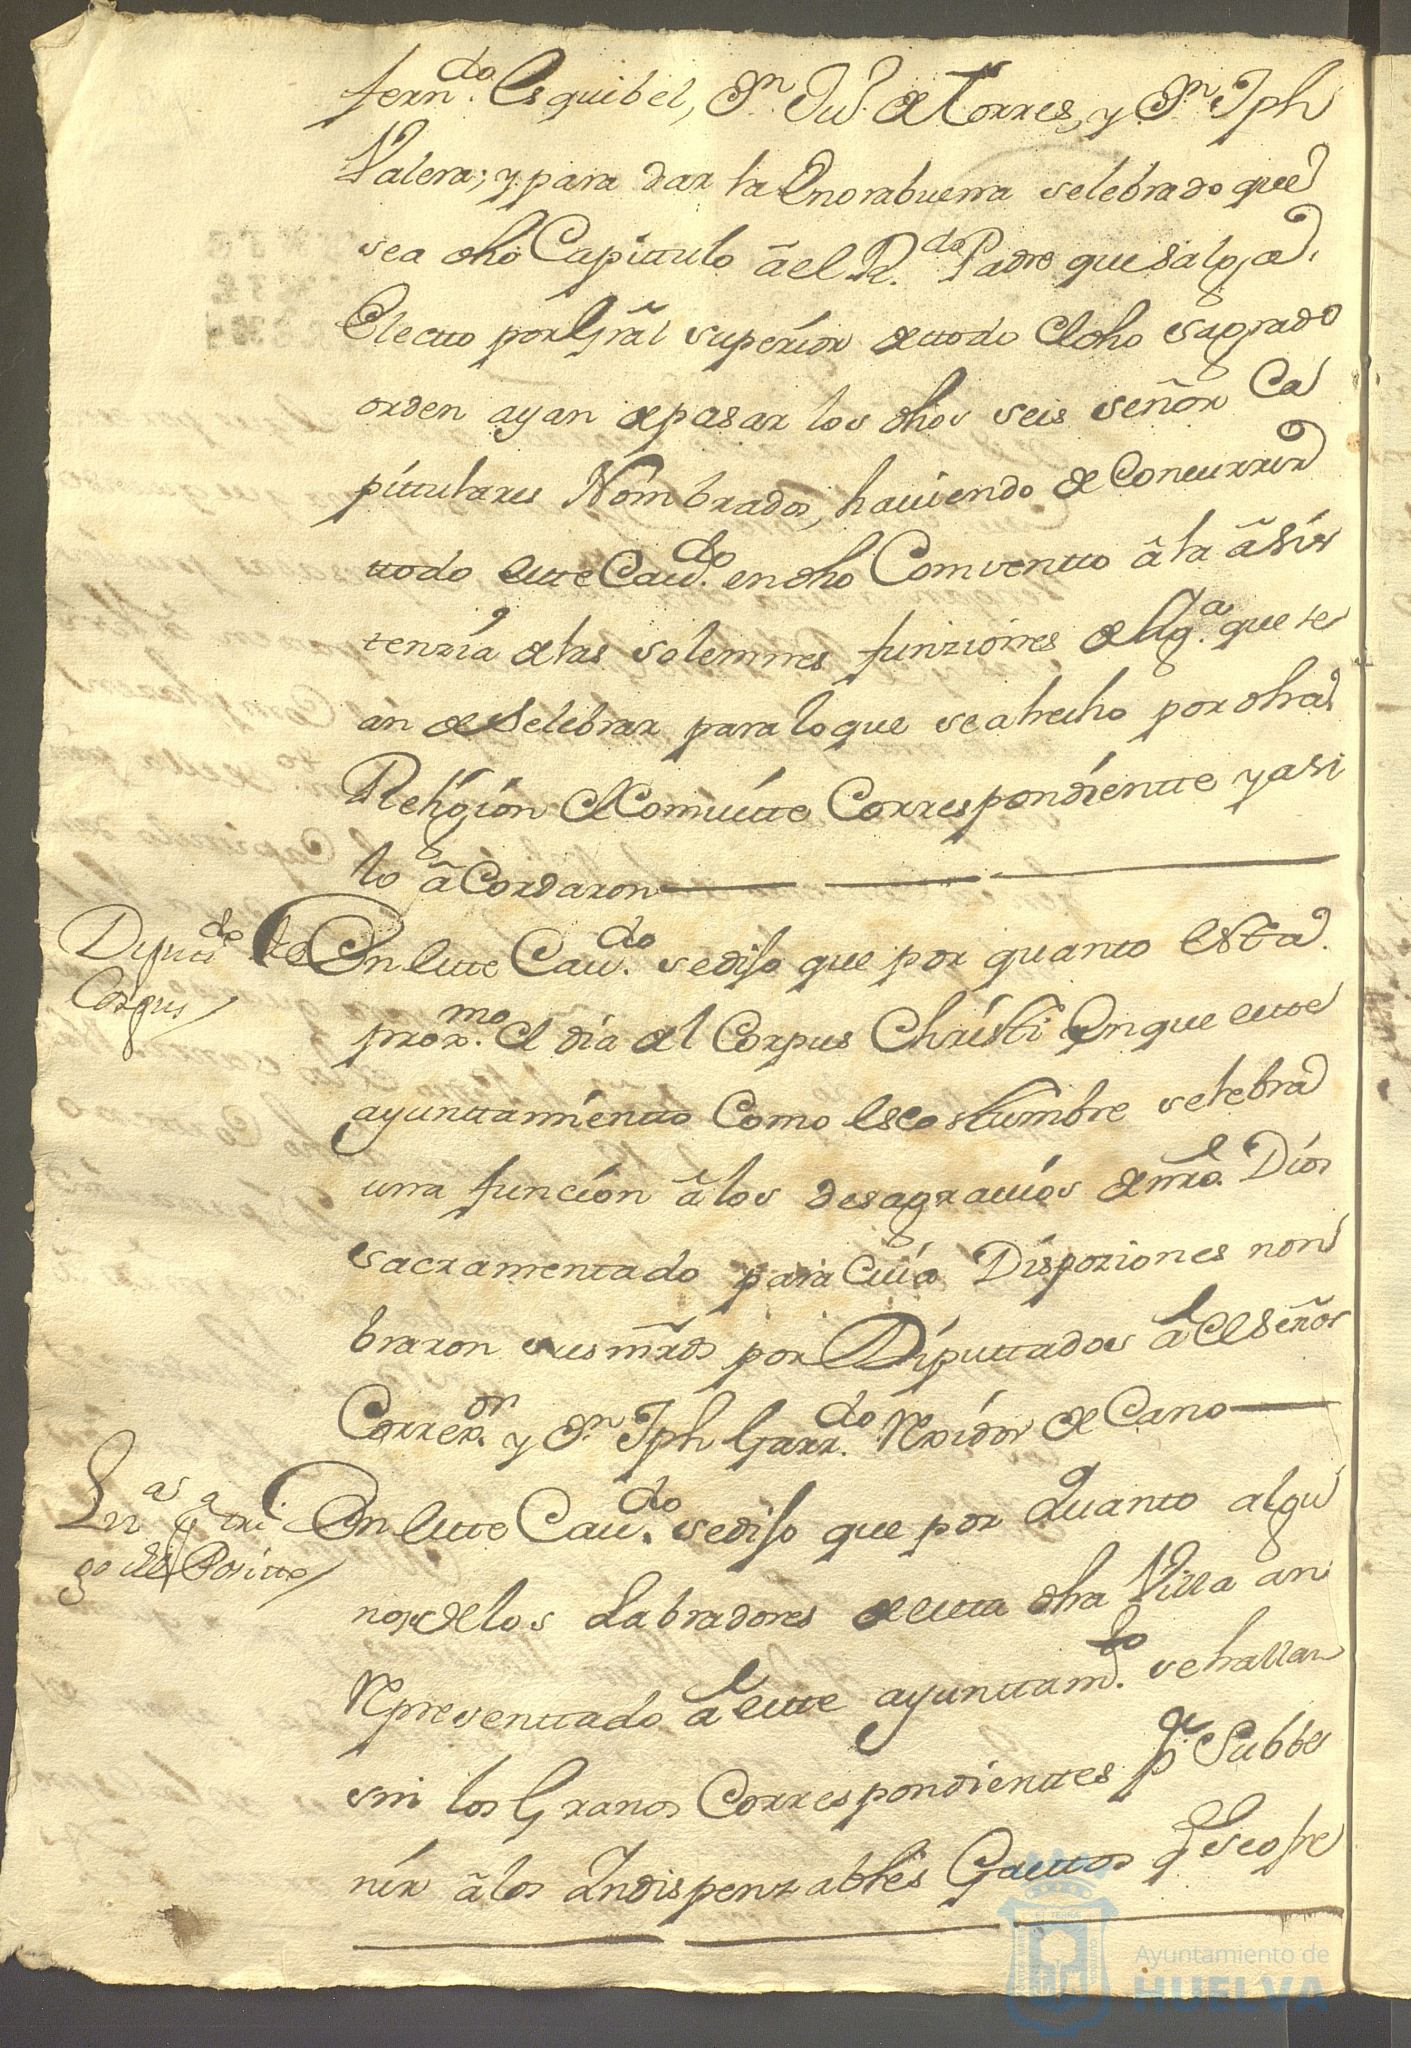 fern.do Esquibel, Dn Ju.º de Torres, y Dn Jph
Valera; y para dar la Enorabuena selebrado que
sea dho Capittulo â el R.do Padre que salga
Electto por Grâl superior de ttodo el dho sagrado
orden ayan de pasar los dhos seis señor Ca
pittulares Nombrados, haviendo de Concurrir
ttodo estte Cav.do en dho Comventto â la âsis
tenzia de las solemnes funziones de Ygª. que se
an de Selebrar para lo que se a hecho por dha
Religion el Comvitte Correspondientte y asi
lo âCordaron
Diputdo de
Corpus
En estte Cav.do se dijo que por quanto esta
prox.mo el dia del Corpus Christi En que estte
ayunttamientto Como es costumbre selebra
una funcion â los desagravios de nro. Dios
sacramentado para Cuia Dispoziones non
braron sus mrds por Diputtados â el señor
Correx.or y Dn Jph Garr.do Rexidor de Cano
En estte Cav.do se dijo que por Quanto algu
nos de los Labradores de estta dha Villa an
Representtado â estte ayunttam.to se hallan
sin los Granos Correspondienttes p.ª Subbe
nir â los Indispenzables Gasttos q.e se ofre
go del Positto
Ayuntamiento de
HUELVA